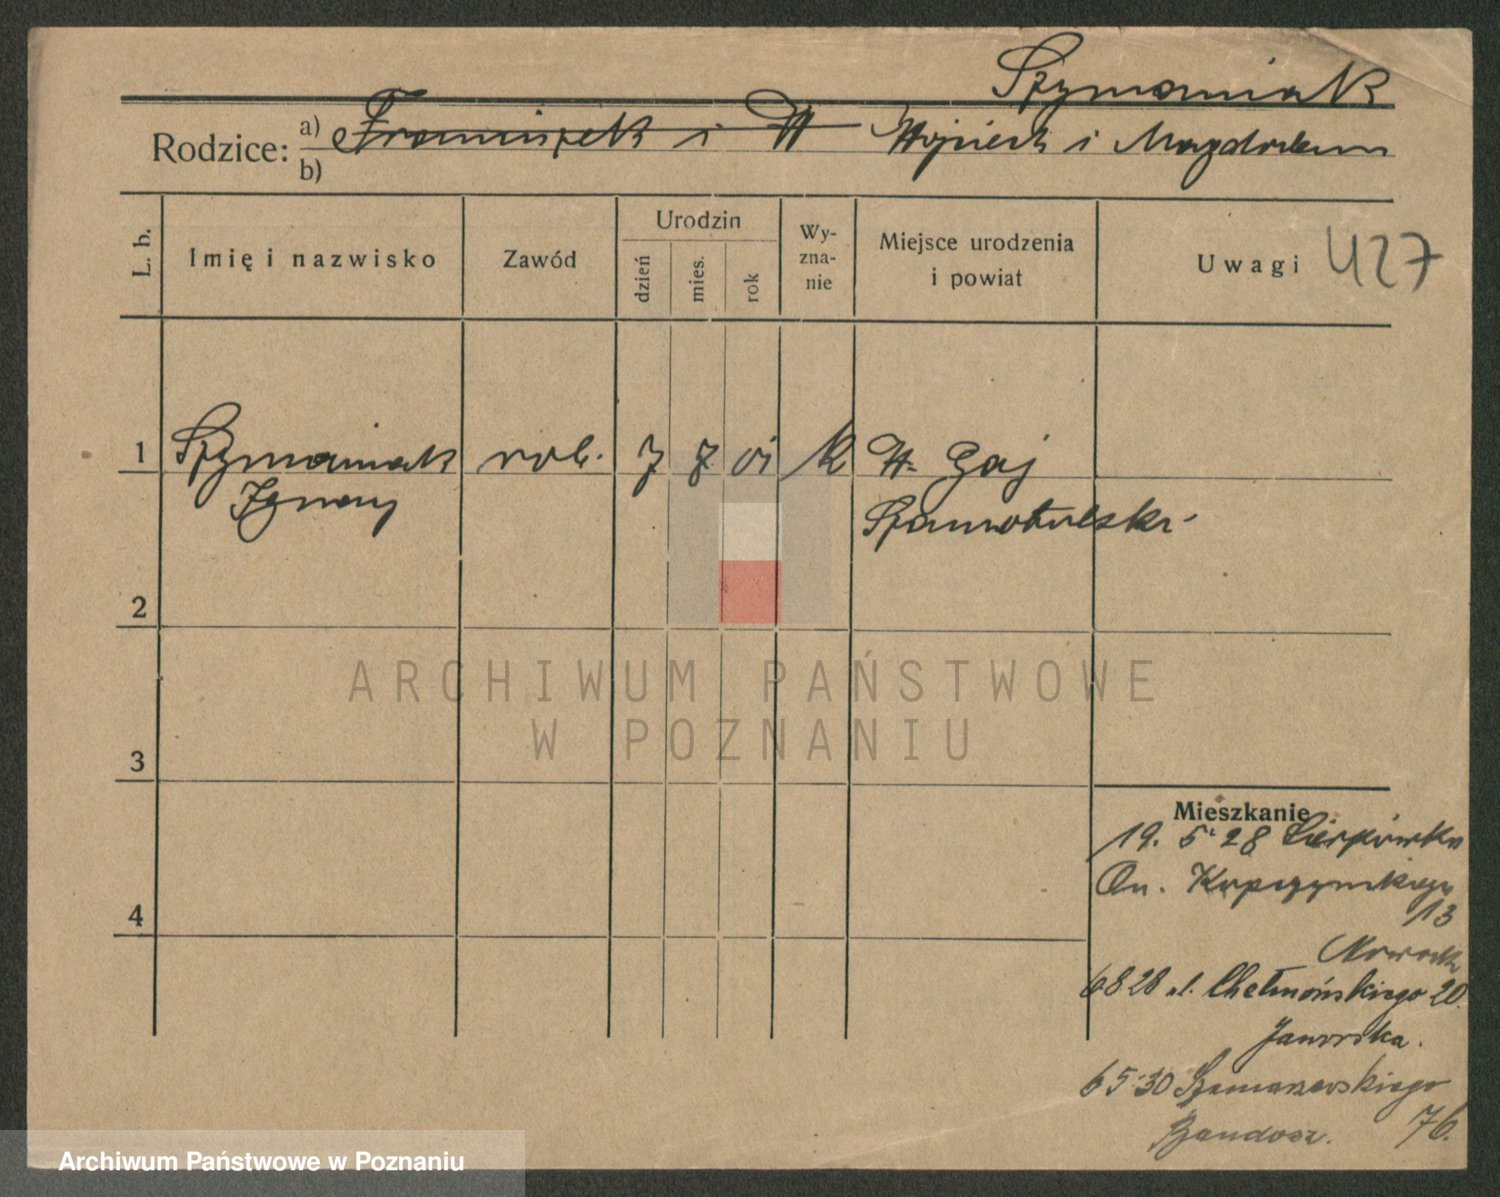 Szymaniak
Rodzice: a) Franciszek i W Wojciech i Magdalena
b)
L. b.
Imię i nazwisko
Zawód
Urodzin
dzień
mies.
rok
Wy-
zna-
nie
Miejsce urodzenia
i powiat
Uwagi 427
1 Szymaniak rob. 7 7 01 k W. Gaj
Ignacy Szamotulski
2
3
4
ARCHIWUM PAŃSTWOWE
W POZNANIU
Mieszkanie
19. 5 28
13
Nowack
6 8 28 ul. Chełmońskiego 20
Jaworska.
6 5 30 Szamarzewskiego
Bandosz. 76.
Archiwum Państwowe w Poznaniu